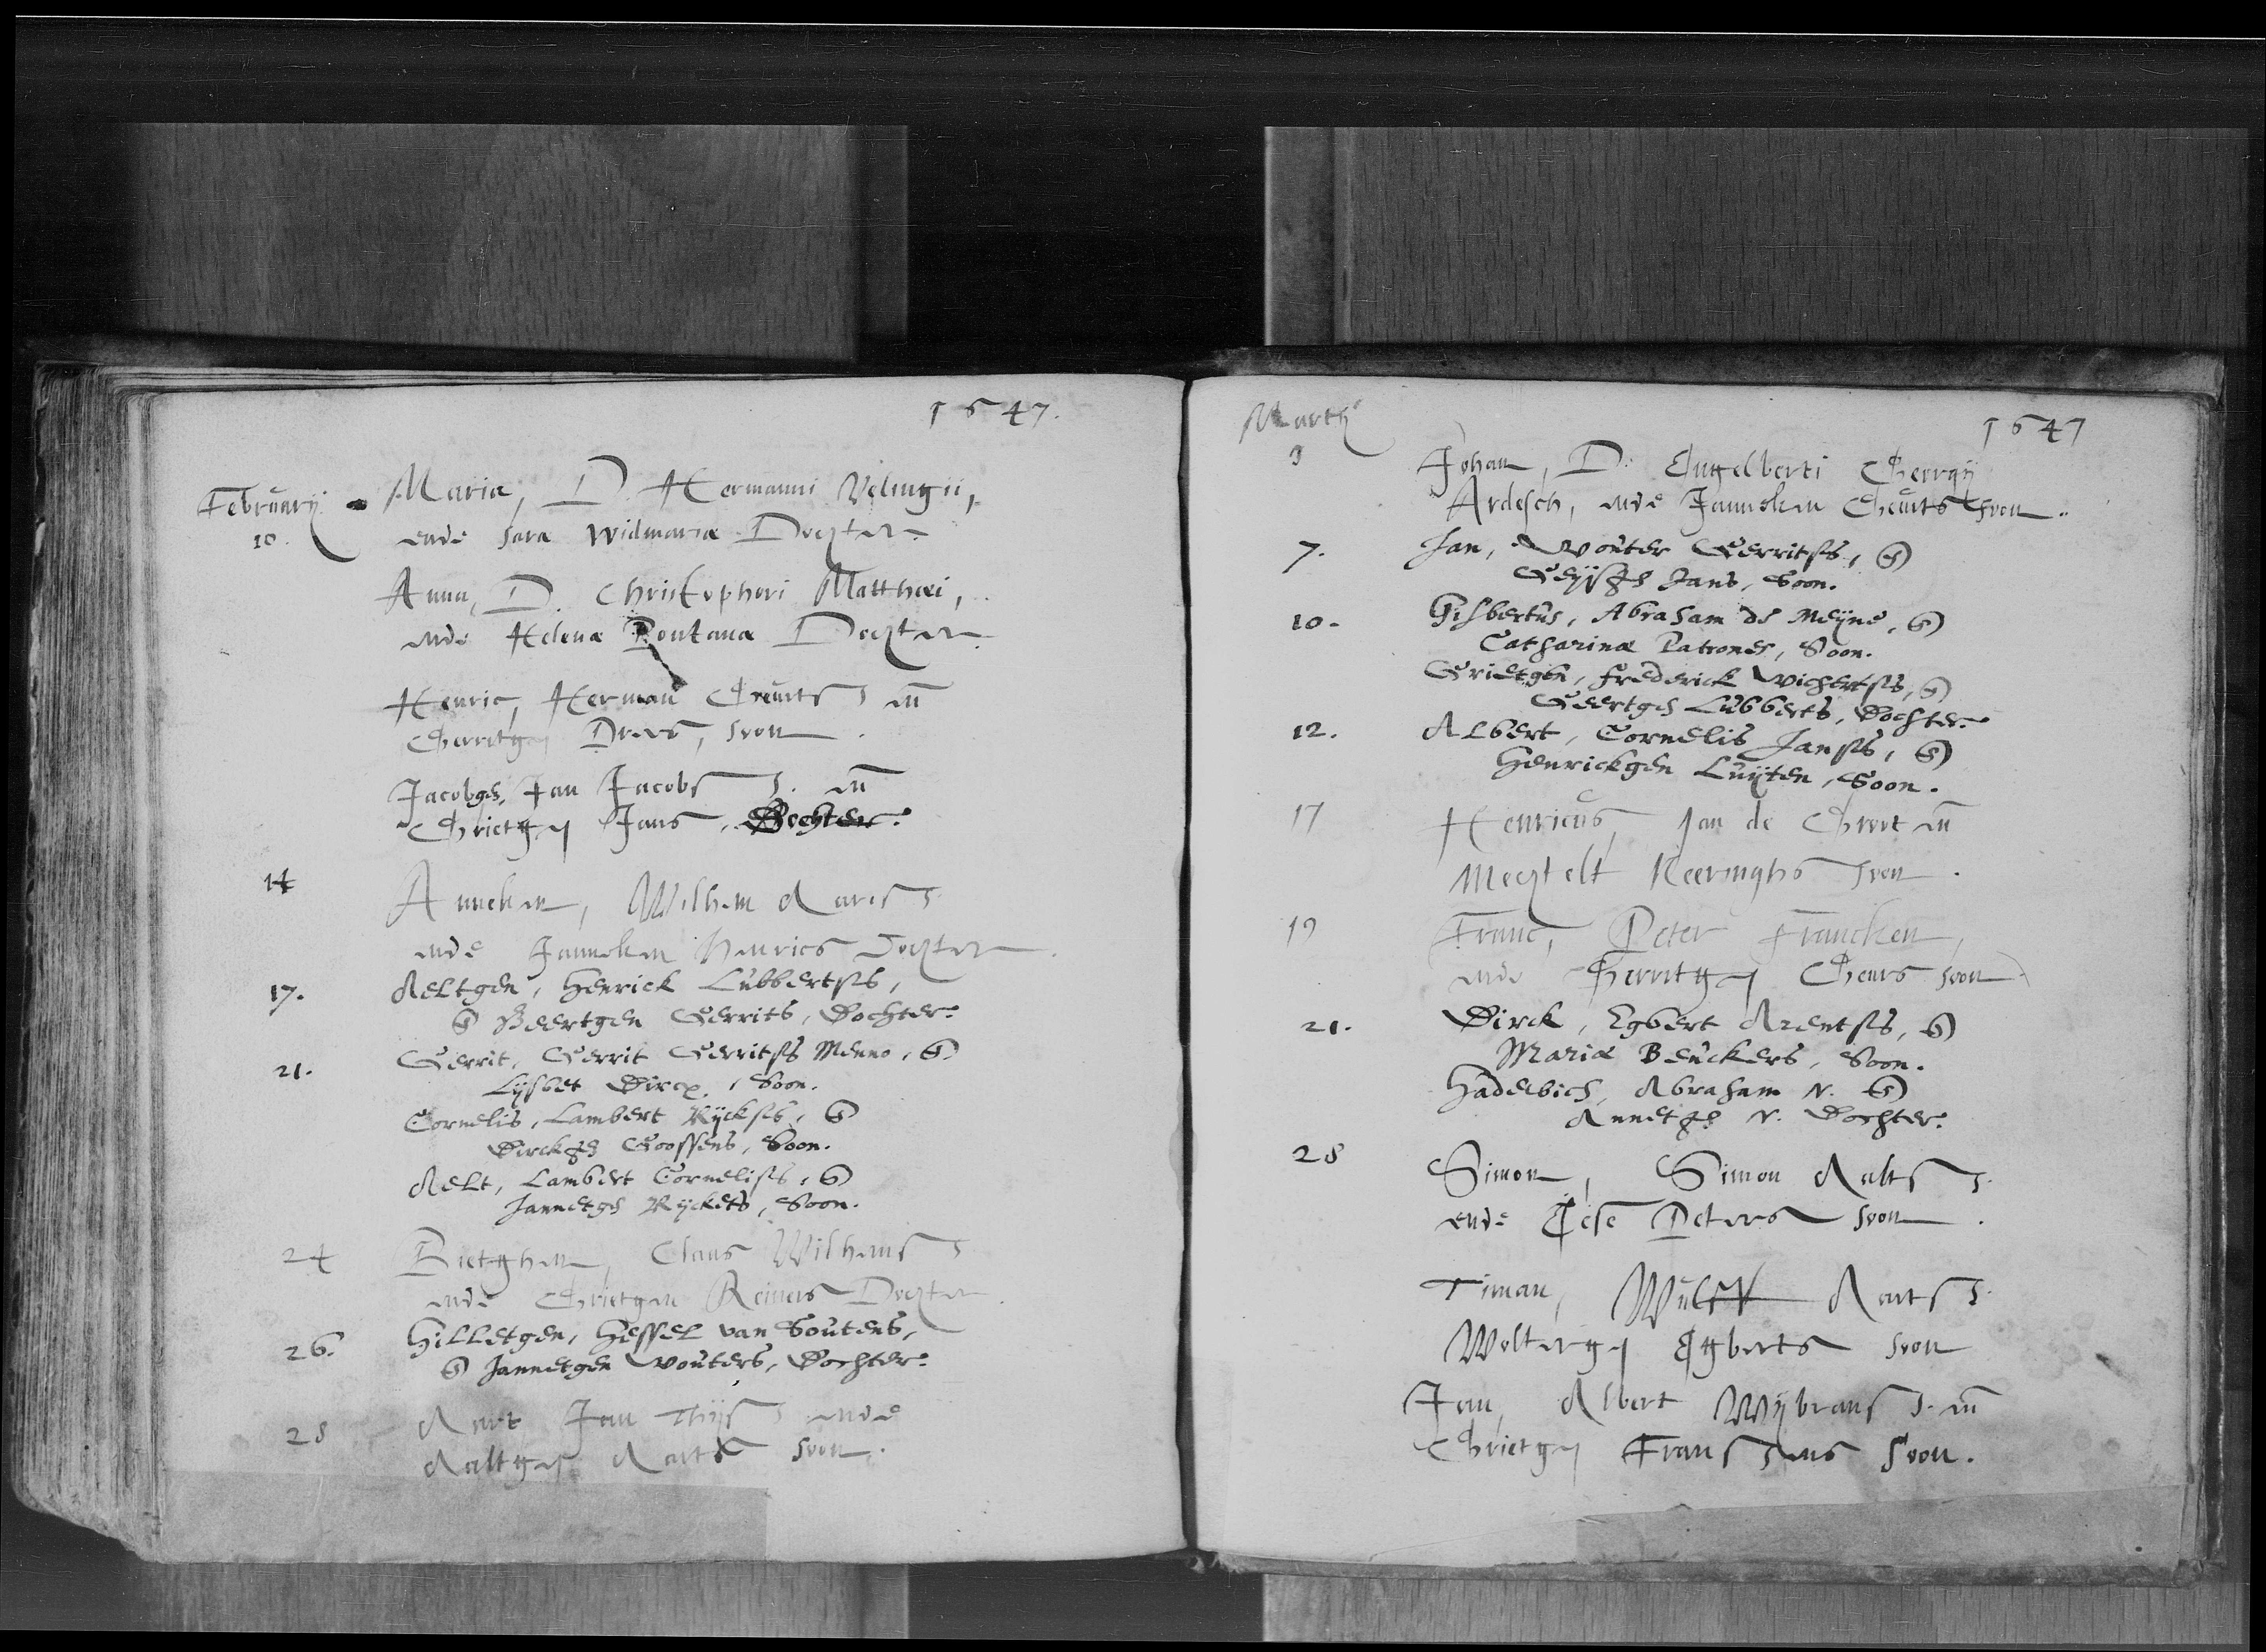 1647.
Februarij Maria, D. Hermanni Velingii,
10. ende Sara Widmariæ Dochter
Anna, D. Christophori Matthæi,
ende Helenæ Pontanæ Dochter.
Henric, Herman Geurts S en̄
Gerritgen Drees, soon.
Jacobgen, Jan Jacobs S. en̄
Grietgen Jans, Dochter.
14 Anneken, Wilhem Aartss
ende Janneken Henrics Dochter.
17. Aeltgen, Henrick Lubbertss,
en̄ Beertgen Gerrits, Dochter.
21. Gerrit, Gerrit Gerritss Menno, en̄
Lijsbet Dircx, Soon.
Cornelis, Lambert Rijckss, en̄
Dirckgen Goossens, Soon.
Aelt, Lambert Corneliss, en̄
Jannetgen Ryckets, Soon.
24 Bietghen, Claas Wilhems S
ende Grietgen Reiners Dochter.
26. Hilletgen, Hessel van Soutens,
en̄ Jannetgen Wouters, Dochter.
28 Aart Jan Thijs S ende
Aaltgen Aarts soon.
Martij 1647
3 Johan, D. Engelberti Gerrgij
Ardesch, ende Janneken Geurts soon.
7. Jan, Wouter Gerritss, en̄
Geijsgen Jans, Soon.
10. Gisbertus, Abraham de Meyne, en̄
Catharinæ Patrones, Soon.
Grietgen, Frederick Wichertss, en̄
Geertgen Lubberts, Dochter.
12. Albert, Cornelis Janss, en̄
Henrickgen Luijten, Soon.
17 Henricus, Jan de Groot en̄
Mechtelt Keeringhs soon.
19 Franc, Peter Francken,
ende Gerritgen Geurs soon.
21. Dirck, Egbert Arentss, en̄
Mariæ Beuckers, Soon.
Hadewich, Abraham N. en̄
Annetgen N. Dochter.
28 Simon, Simon Aalts S.
ende Gese Peters soon.
Timan, Aarts S.
Woltergen Egberts soon
Jan, Albert Wijbrans S. en̄
Grietgen Frans Sens Soon.